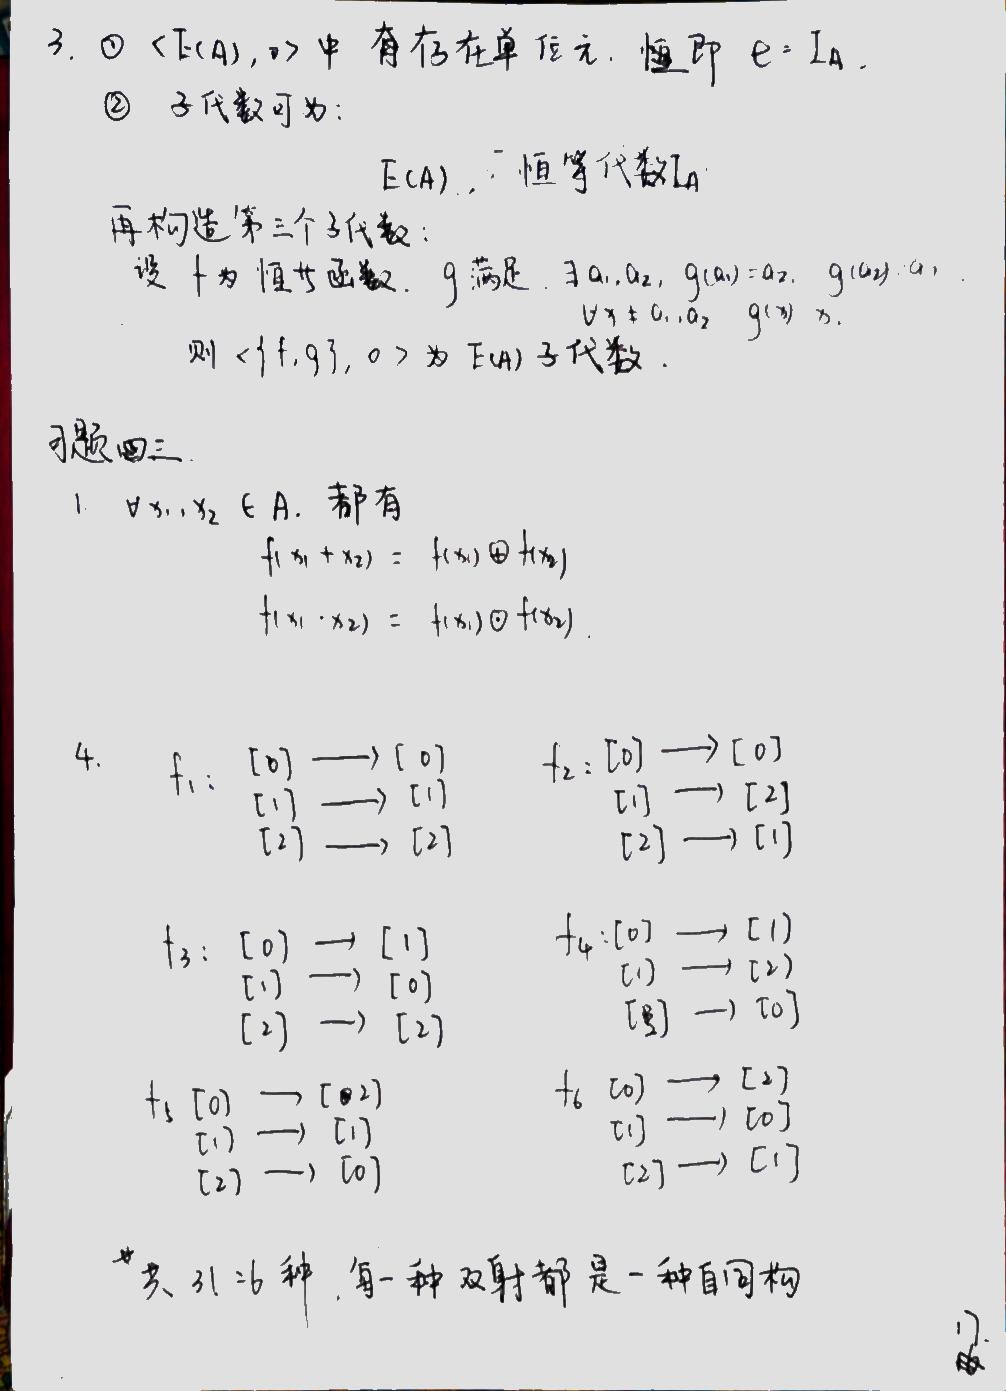 3. ① <E(A), o> 中 存在单位元. 即 e = I_A.
② 子代数可为:
E(A), 恒等代数 I_A
再构造第三个子代数:
设 f 为恒等函数. g 满足. ∃ a₁, a₂, g(a₁)=a₂, g(a₂)=a₁.
∀x ≠ a₁, a₂ g(x) x.
则 <{f, g}, o> 为 E(A) 子代数.
习题四三.
1. ∀x₁, x₂ ∈ A. 都有
f(x₁ + x₂) = f(x₁) ⊕ f(x₂)
f(x₁ · x₂) = f(x₁) ⊙ f(x₂).
4. f₁: [0] → [0] f₂: [0] → [0]
[1] → [1] [1] → [2]
[2] → [2] [2] → [1]
f₃: [0] → [1] f₄: [0] → [1]
[1] → [0] [1] → [2]
[2] → [2] [2] → [0]
f₅ [0] → [2] f₆ [0] → [2]
[1] → [1] [1] → [0]
[2] → [0] [2] → [1]
共 3! = 6 种. 每一种双射都是一种自同构
17.